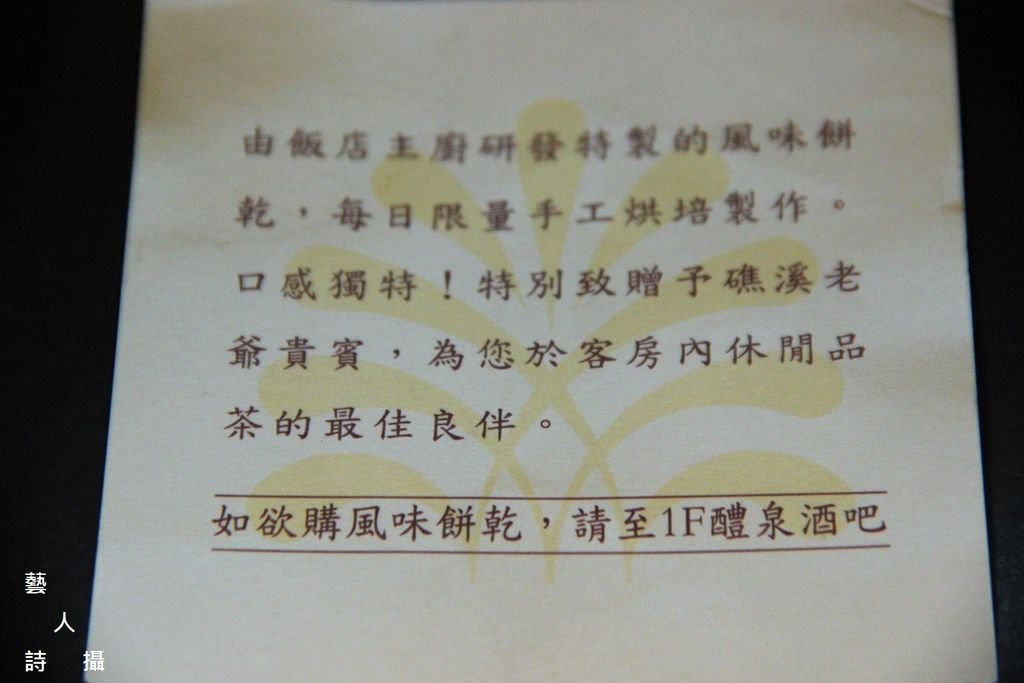 由飯店主廚研發特製的風味餅
乾，每日限量手工烘培製作。
口感獨特！特別致贈予礁溪老
爺貴賓，為您於客房內休閒品
茶的最佳良伴。
如欲購風味餅乾，請至1F醴泉酒吧
藝
人
詩 攝